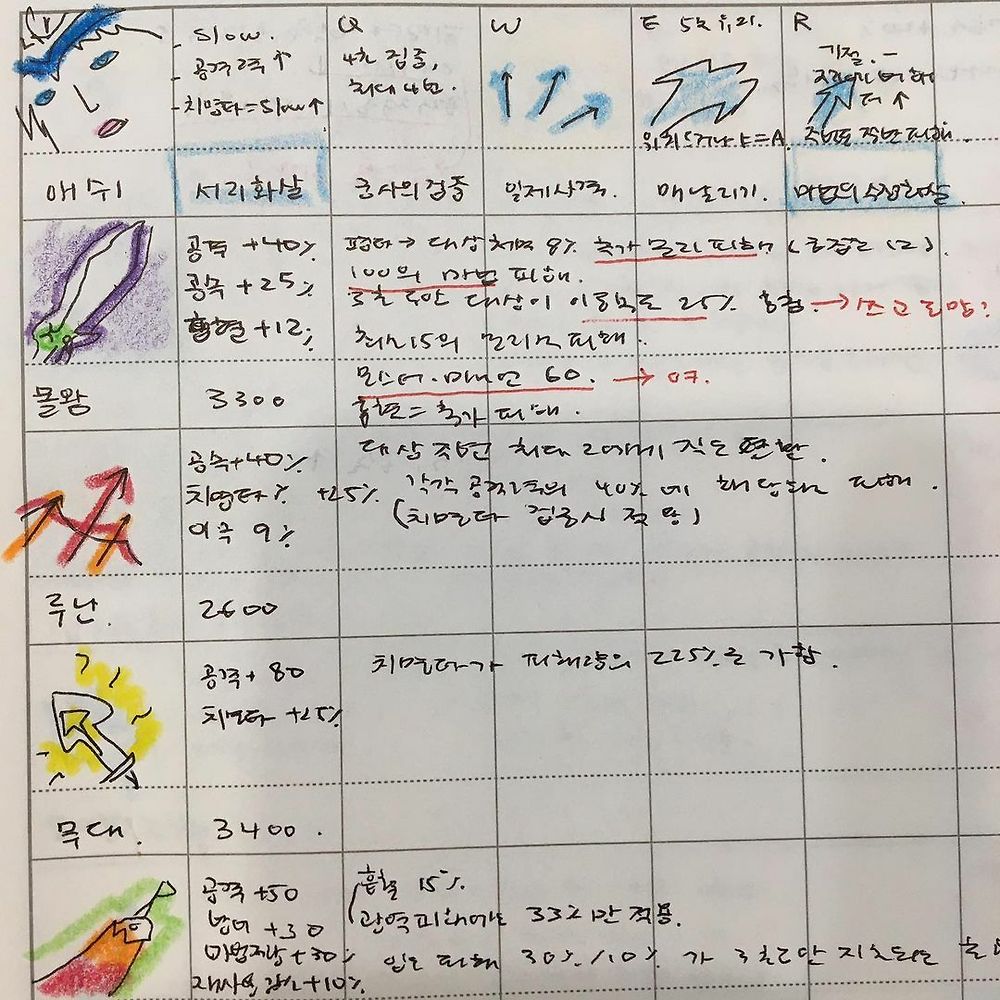 - Slow.
- 공격 2격 ↑
- 치명타 = Slow ↑
Q
4초 집중,
최대 4번.
W
E 5초 유지.
R
기절.
더 ↑
주변도 절반 피해.
애쉬
서리화살
궁사의 집중
일제사격.
매 날리기.
마법의 수정화살.
공격 +40%
공속 +25%
흡혈 +12%
평타 → 대상 체력 8% 추가 물리 피해.
100의 마법 피해.
3초 동안 대상이 이동속도 25% 흡수. → 쏘고 도망?
최소 15의 물리 피해.
몰왕
3300
몬스터·미니언 60. →
흡혈 = 추가 피해.
공속 +40%
치명타% +25%
이속 9%
대상 주변 최대 2에게 적은 탄환.
각각 공격력의 40%에 해당하는 피해.
(치명타 적용)
루난.
2600
공격 + 80
치명타 +25%
치명타가 피해량의 225%를 가함.
무대.
3400.
공격 +50
방어 +30
마법저항 +30%
+10%
흡혈 15%.
광역피해에는 33%만 적용.
입는 피해 30%/10%가 3초 동안 지속되는